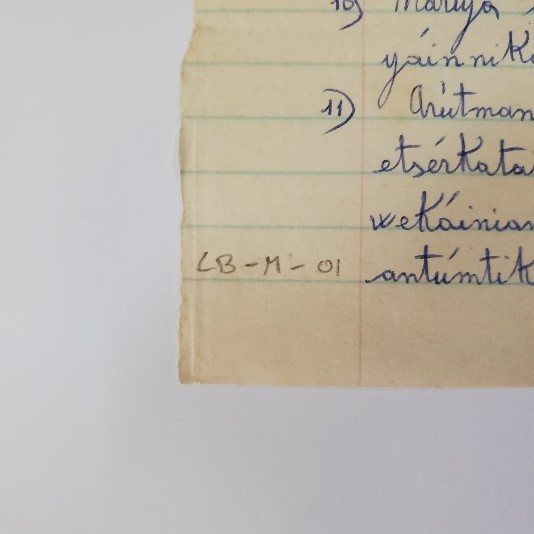 10) Mariya
yáinnik
11) Arútman
etsérkata
wekáinian
LB-M-01 antúmtik